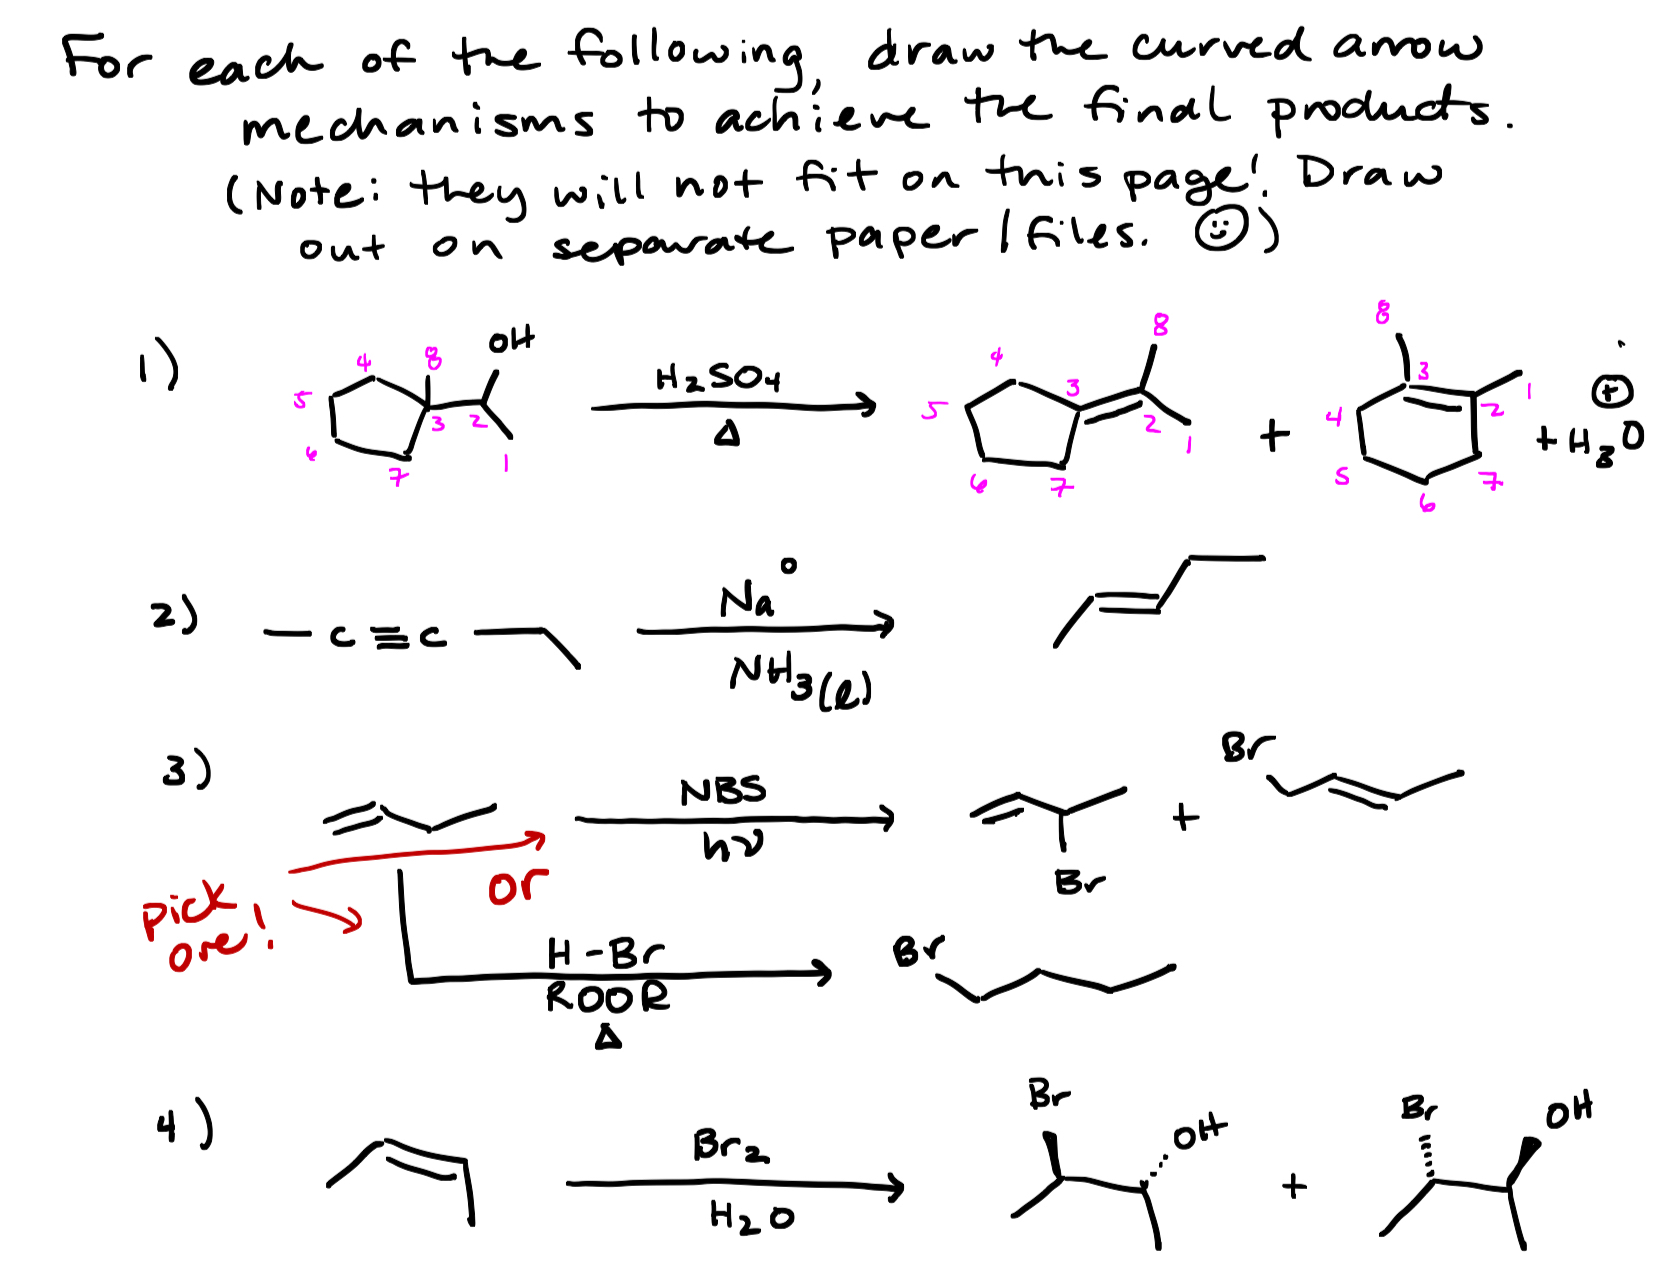 For each of the following, draw the curved arrow
mechanisms to achieve the final products.
(Note: they will not fit on this page! Draw
out on separate paper / files. ☺)
1)
4 8 OH
5 3 2
6 7 1
H₂SO₄
Δ
8
4 3
5 2 1
6 7
+
8
3 1
4 2
5 7
6
⊕
+ H₃O
2)
— C ≡ C —
Na⁰
NH₃(l)
3)
NBS
hν
Br
+
Br
pick
one!
or
H-Br
ROOR
Δ
Br
4)
Br₂
H₂O
Br
OH
+
Br
OH